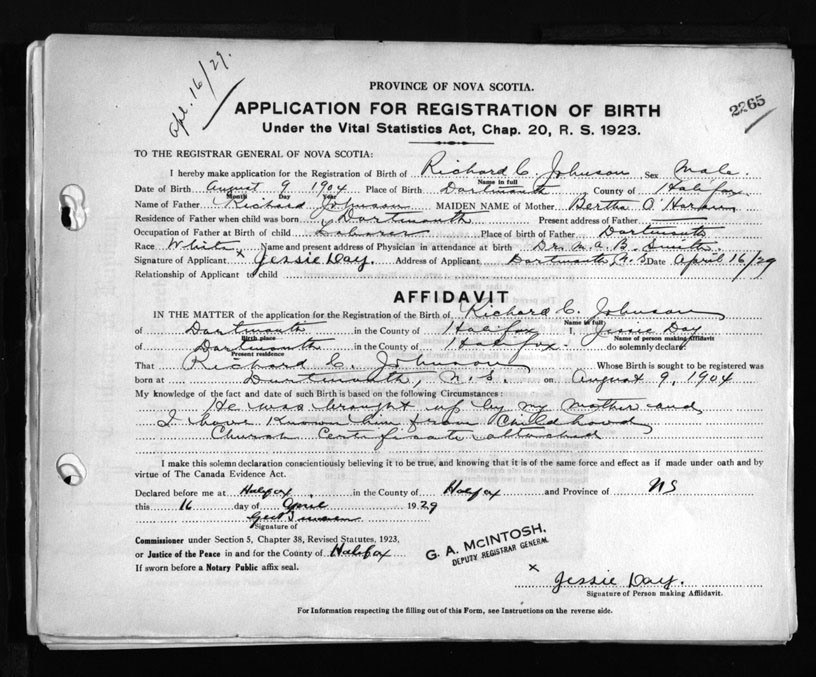 Apr. 16/29.
2265
PROVINCE OF NOVA SCOTIA.
APPLICATION FOR REGISTRATION OF BIRTH
Under the Vital Statistics Act, Chap. 20, R. S. 1923.
TO THE REGISTRAR GENERAL OF NOVA SCOTIA:
I hereby make application for the Registration of Birth of Richard C. Johnson Sex Male.
Name in full
Date of Birth August 9 1904 Place of Birth Dartmouth County of Halifax
Month Day Year
Name of Father Richard Johnson MAIDEN NAME of Mother Bertha A.
Residence of Father when child was born Dartmouth Present address of Father
Occupation of Father at Birth of child Laborer Place of birth of Father Dartmouth
Race White Name and present address of Physician in attendance at birth Dr. M. A. B. Smith.
Signature of Applicant x Jessie Day. Address of Applicant Dartmouth, N.S Date April 16/29
Relationship of Applicant to child
AFFIDAVIT
IN THE MATTER of the application for the Registration of the Birth of Richard C. Johnson
Name in full
of Dartmouth in the County of Halifax I, Jessie Day
Birth place Name of person making Affidavit
of Dartmouth in the County of Halifax do solemnly declare
Present residence
That Richard C. Johnson Whose Birth is sought to be registered was
born at Dartmouth, N.S. on August 9, 1904
My knowledge of the fact and date of such Birth is based on the following Circumstances:
He was brought up by my mother and
I have known him from childhood
Church Certificate attached
I make this solemn declaration conscientiously believing it to be true, and knowing that it is of the same force and effect as if made under oath and by
virtue of The Canada Evidence Act.
Declared before me at Halifax in the County of Halifax and Province of NS
this 16 day of April 1929
Signature of
Commissioner under Section 5, Chapter 38, Revised Statutes, 1923,
or Justice of the Peace in and for the County of Halifax
If sworn before a Notary Public affix seal.
G. A. McINTOSH.
DEPUTY REGISTRAR GENERAL
x Jessie Day.
Signature of Person making Affidavit.
For Information respecting the filling out of this Form, see Instructions on the reverse side.